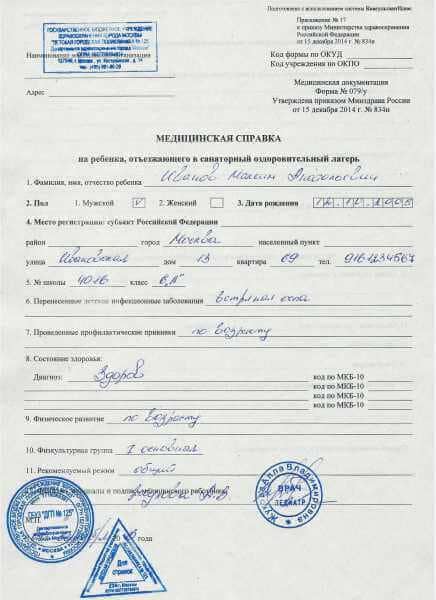 Подготовлено с использованием системы КонсультантПлюс
Приложение № 17
к приказу Министерства здравоохранения
Российской Федерации
от 15 декабря 2014 г. № 834н
ГОСУДАРСТВЕННОЕ БЮДЖЕТНОЕ УЧРЕЖДЕНИЕ
ЗДРАВООХРАНЕНИЯ ГОРОДА МОСКВЫ
"ДЕТСКАЯ ГОРОДСКАЯ ПОЛИКЛИНИКА № 125
Код формы по ОКУД
Код учреждения по ОКПО
Адрес
Медицинская документация
Форма № 079/у
Утверждена приказом Минздрава России
от 15 декабря 2014 г. № 834н
МЕДИЦИНСКАЯ СПРАВКА
на ребенка, отъезжающего в санаторный оздоровительный лагерь
1. Фамилия, имя, отчество ребенка Иванов Максим Анатольевич
2. Пол 1. Мужской V 2. Женский 3. Дата рождения
4. Место регистрации: субъект Российской Федерации
район город Москва населенный пункт
улица Ивановская дом 13 квартира 69 тел. 9161234567
5. № школы 4016 класс 6„А"
6. Перенесенные детские инфекционные заболевания ветряная оспа
7. Проведенные профилактические прививки по возрасту
8. Состояние здоровья:
Диагноз: Здоров код по МКБ-10
код по МКБ-10
код по МКБ-10
код по МКБ-10
9. Физическое развитие по возрасту
10. Физкультурная группа I основная
11. Рекомендуемый режим общий
и подпись медицинского работника
Жукова Алла Владимировна
ВРАЧ
ПЕДИАТР
ГБУЗ "ДГП № 125"
МОСКВА
Для
справок